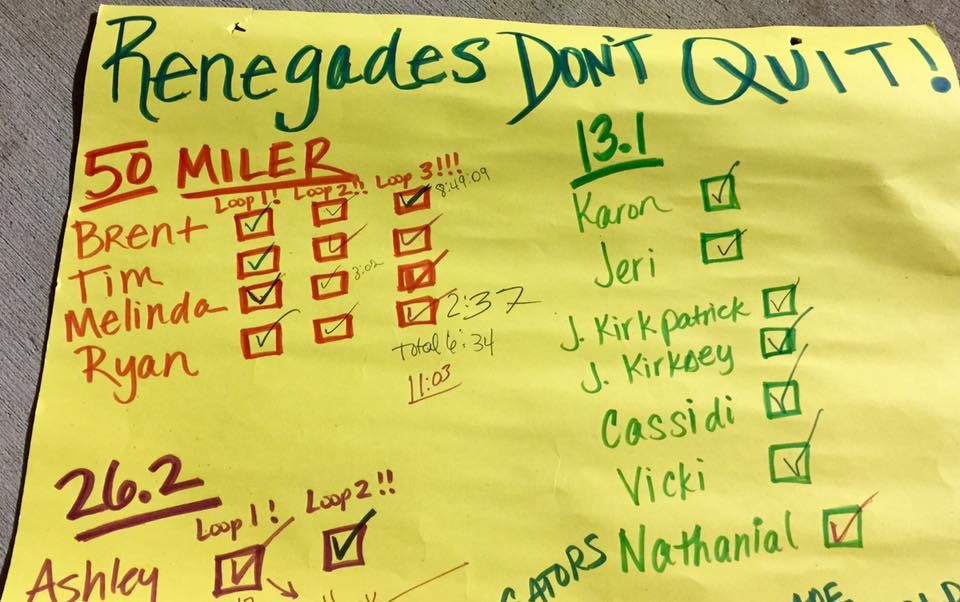 Renegades DON'T QUIT!
50 MILER
Loop 1! Loop 2!! Loop 3!!!
Brent 8:49:09
Tim
Melinda 3:02
Ryan 2:37
Total 6:34
11:03
13.1
Karon
Jeri
J. Kirkpatrick
J. Kirksey
Cassidi
Vicki
Nathanial
26.2
Loop 1! Loop 2!!
Ashley